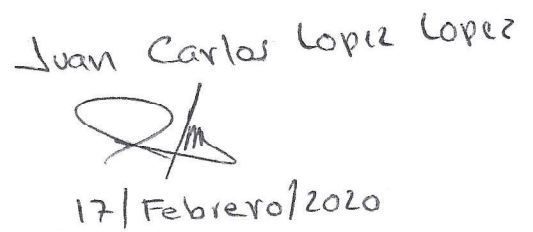 Juan Carlos Lopez Lopez
17/Febrero/2020